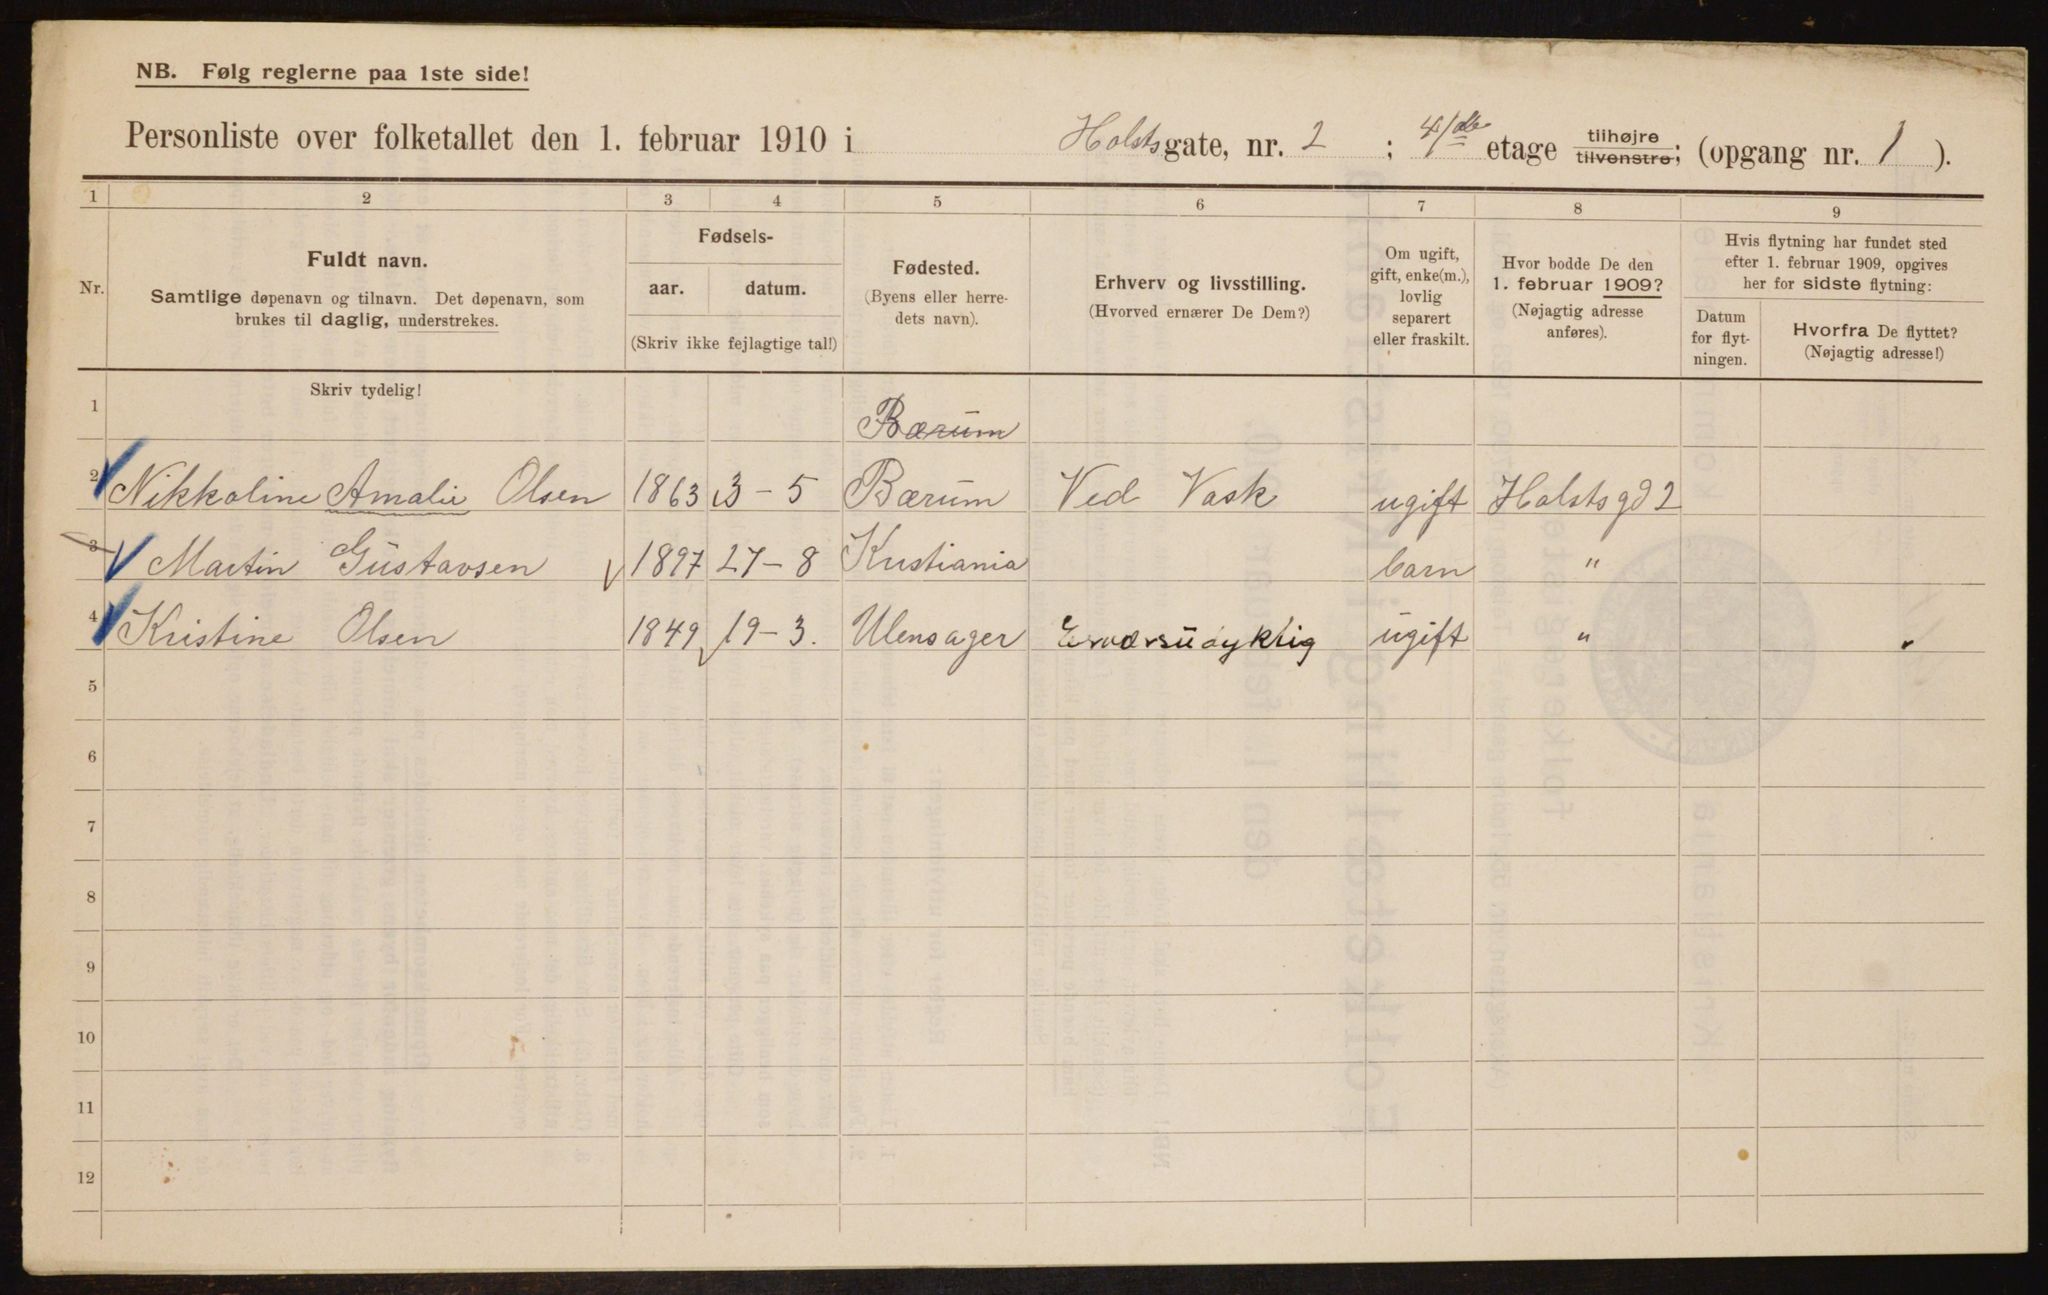 NB. Følg reglerne paa 1ste side!
Personliste over folketallet den 1. februar 1910 i Holstsgate, nr. 2 ; 4/de etage tilhøjre tilvenstre; (opgang nr. 1 ).
1 2 3 4 5 6 7 8 9
Nr.
Fuldt navn.
Samtlige døpenavn og tilnavn. Det døpenavn, som
brukes til daglig, understrekes.
Fødsels-
aar. datum.
(Skriv ikke fejlagtige tal!)
Fødested.
(Byens eller herre-
dets navn).
Erhverv og livsstilling.
(Hvorved ernærer De Dem?)
Om ugift,
gift, enke(m.),
lovlig
separert
eller fraskilt.
Hvor bodde De den
1. februar 1909?
(Nøjagtig adresse
anføres).
Hvis flytning har fundet sted
efter 1. februar 1909, opgives
her for sidste flytning:
Datum
for flyt-
ningen.
Hvorfra De flyttet?
(Nøjagtig adresse!)
Skriv tydelig!
1 Bærum
2 Nikkoline Amalie Olsen 1863 3-5 Bærum Ved Vask ugift Holstsgd 2
3 Martin Gustavsen 1897 27-8 Kristiania barn "
4 Kristine Olsen 1849 19-3. Ulensager Erværsudyktig ugift "
5
6
7
8
9
10
11
12